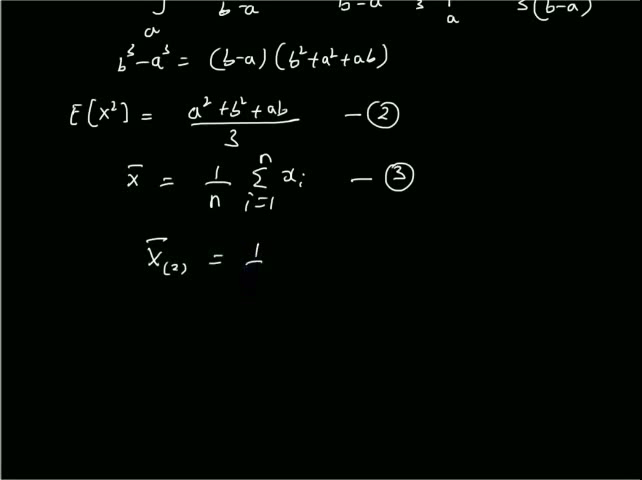 ∫ a b-a b-a 3 a 3(b-a)
b³-a³ = (b-a) (b²+a²+ab)
E[X²] = a²+b²+ab / 3 — ②
x̄ = 1/n Σ i=1 n xᵢ — ③
X̄₍₂₎ = 1